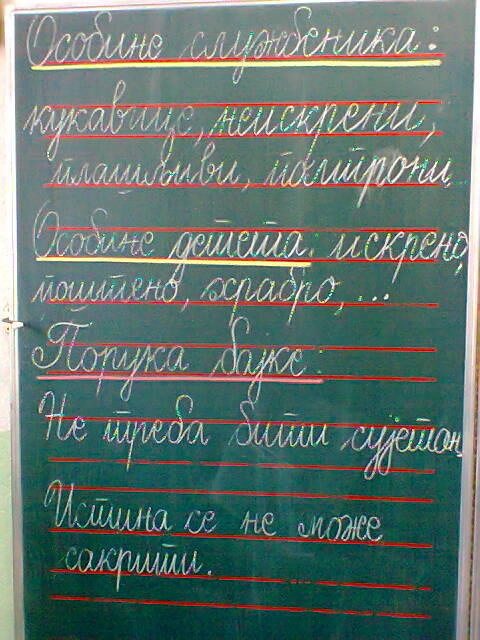 Особине службеника:
кукавице, неискрени,
плашљиви, полтрони
Особине детета: искрено,
поштено, храбро, ...
Порука бајке:
Не треба бити сујетан
Истина се не може
сакрити.